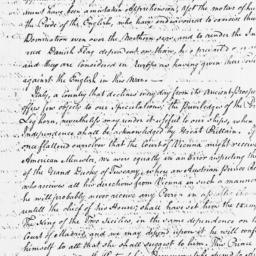 must have been a mistaken apprehension; Yet the motives of hu
the Pride of the English, who have endeavoured to exercise their
Domination even over the Northern seas, and to render the
and Danish Flag dependent on them, has prevailed
and they are considered in Europe as having given their
against the English in this War.
Italy, a Country that declines every day from its ancient Prosper
offers few objects to our Speculations; the Privileges of the P
Leghorn, nevertheless may render it useful to our ships, when
Independence shall be acknowledged by Great Britain.
once flattered ourselves that the Court of Vienna might receive
American Minister, we were equally in an Error respecting th
of the Grand Duke of Tuscany, where an Austrian Prince
who receives all his directions from Vienna in such a manner
he will probably never receive any Person in
untill the Chief of his House, shall have set him the exam
The King of the two Sicilies, in the same dependence on t
Court of Madrid, and we may depend upon it he will conf
himself to all that she shall suggest to him. This Prince